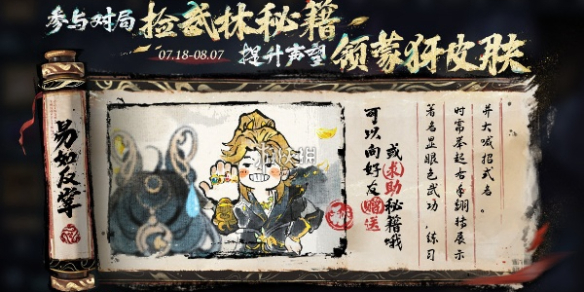 参与对局 捡武林秘籍
07.18-08.07 提升声望 领蒙犽皮肤
易如反掌
可以向好友赠送
或求助秘籍哦
并大喊招式名。
时常举起右手翻转展示
著名显眼色武功,练习